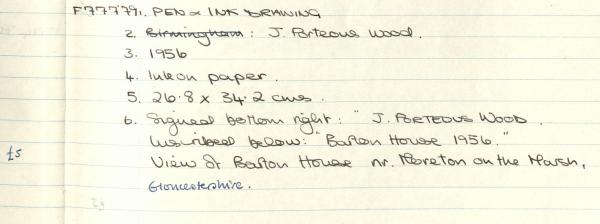 F77779. PEN & INK DRAWING
2. Birmingham: J. Porteous Wood.
3. 1956
4. Ink on paper.
5. 26.8 x 34.2 cms.
6. Signed bottom right: "J. PORTEOUS WOOD.
Inscribed below: "Barton House 1956."
£5 View of Barton House nr. Moreton on the Marsh,
Gloucestershire.